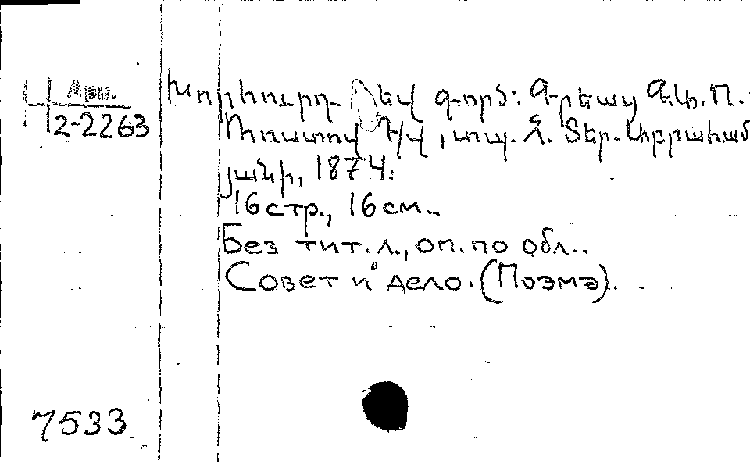 Арм.
2-2263
Խորհուրդ եւ գործ: Գրեաց Գ.Ա.Պ.
Ռոստով Դ/վ, տպ. Հ. Տեր-Աբրահամ
յանի, 1874:
16 стр., 16 см..
Без тит.л., оп.по обл..
Совет и дело. (Поэма).
7533